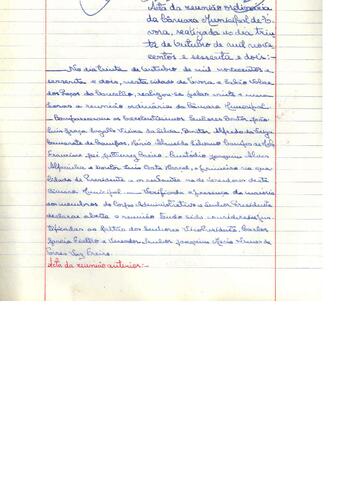 Acta da reunião ordinária
da Câmara Municipal de É-
vora, realizada no dia trin-
ta de Outubro de mil nove-
centos e sessenta e dois:-
No dia trinta de Outubro de mil novecentos e
sessenta e dois, nesta cidade de Évora e Salão Nobre
dos Paços do Concelho, realizou-se pelas vinte e uma
horas a reunião ordinária da Câmara Municipal.
Compareceram os Excelentíssimos Senhores Doutor João
Luís Vieira da Silva, Doutor Alfredo
Barreto de Campos, Mário
Francisco Eustódio Joaquim Alves
e Doutor Luís o primeiro na qua-
lidade de Presidente e os restantes na de Vereadores desta
Câmara Municipal. Verificada a presença da maioria
dos membros do Corpo Administrativo o Senhor Presidente
declarou aberta a reunião tendo sido consideradas jus-
tificadas as faltas dos Senhores Vice-Presidente, Carlos
e Vereador Senhor Joaquim
Torres Vaz Freire.
Acta da reunião anterior:-